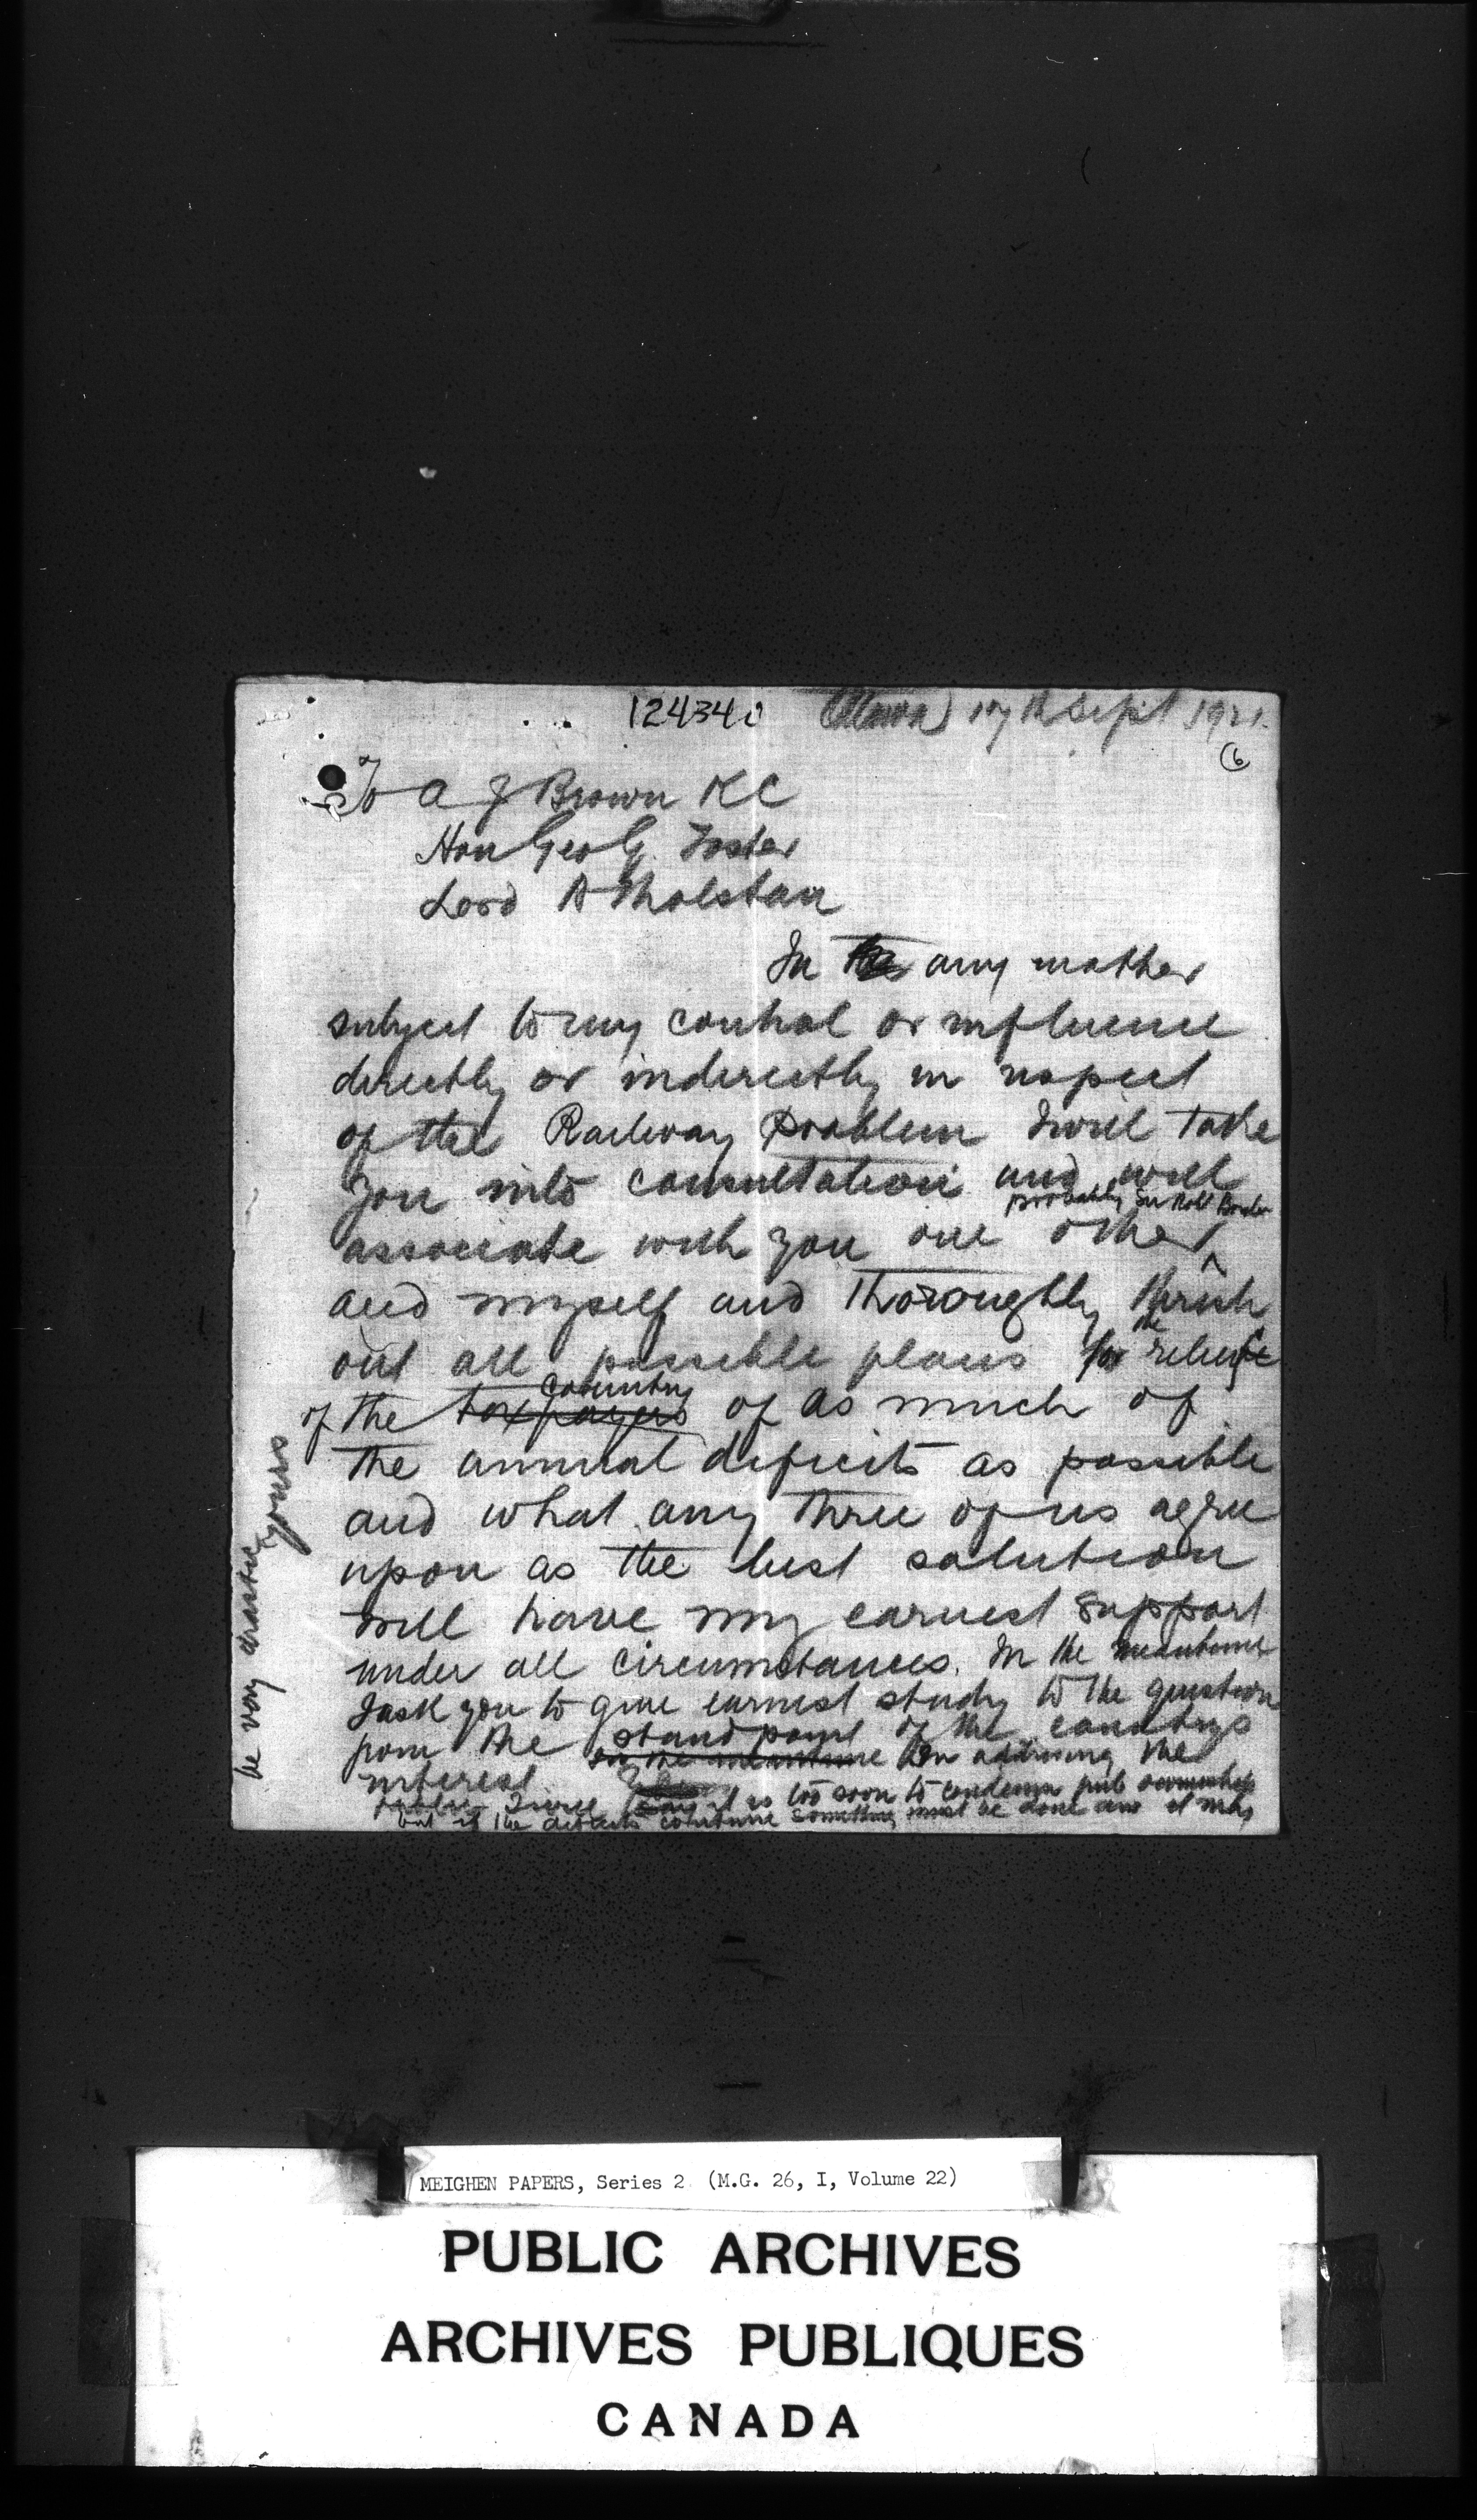 124340 Ottawa 17th Sept 1921.
6
To A J Brown KC
Hon Geo G. Foster
Lord Atholstan
In any matter
subject to my control or influence
directly or indirectly in respect
of the Railway problem I will take
you into consultation and will
probably Sir Robt Borden
associate with you one other
and myself and thoroughly thrash
out all possible plans for the relief
country
of the taxpayers of as much of
the annual deficits as possible
and what any three of us agree
upon as the best solution
will have my earnest support
under all circumstances. In the meantime
I ask you to give earnest study to the question
from the stand point of the countrys
interest in the meantime In addressing the
public I will say it is too soon to condemn pub ownership
but if the deficits continue something must be done and it may
be very drastic
yours
MEIGHEN PAPERS, Series 2 (M.G. 26, I, Volume 22)
PUBLIC ARCHIVES
ARCHIVES PUBLIQUES
CANADA